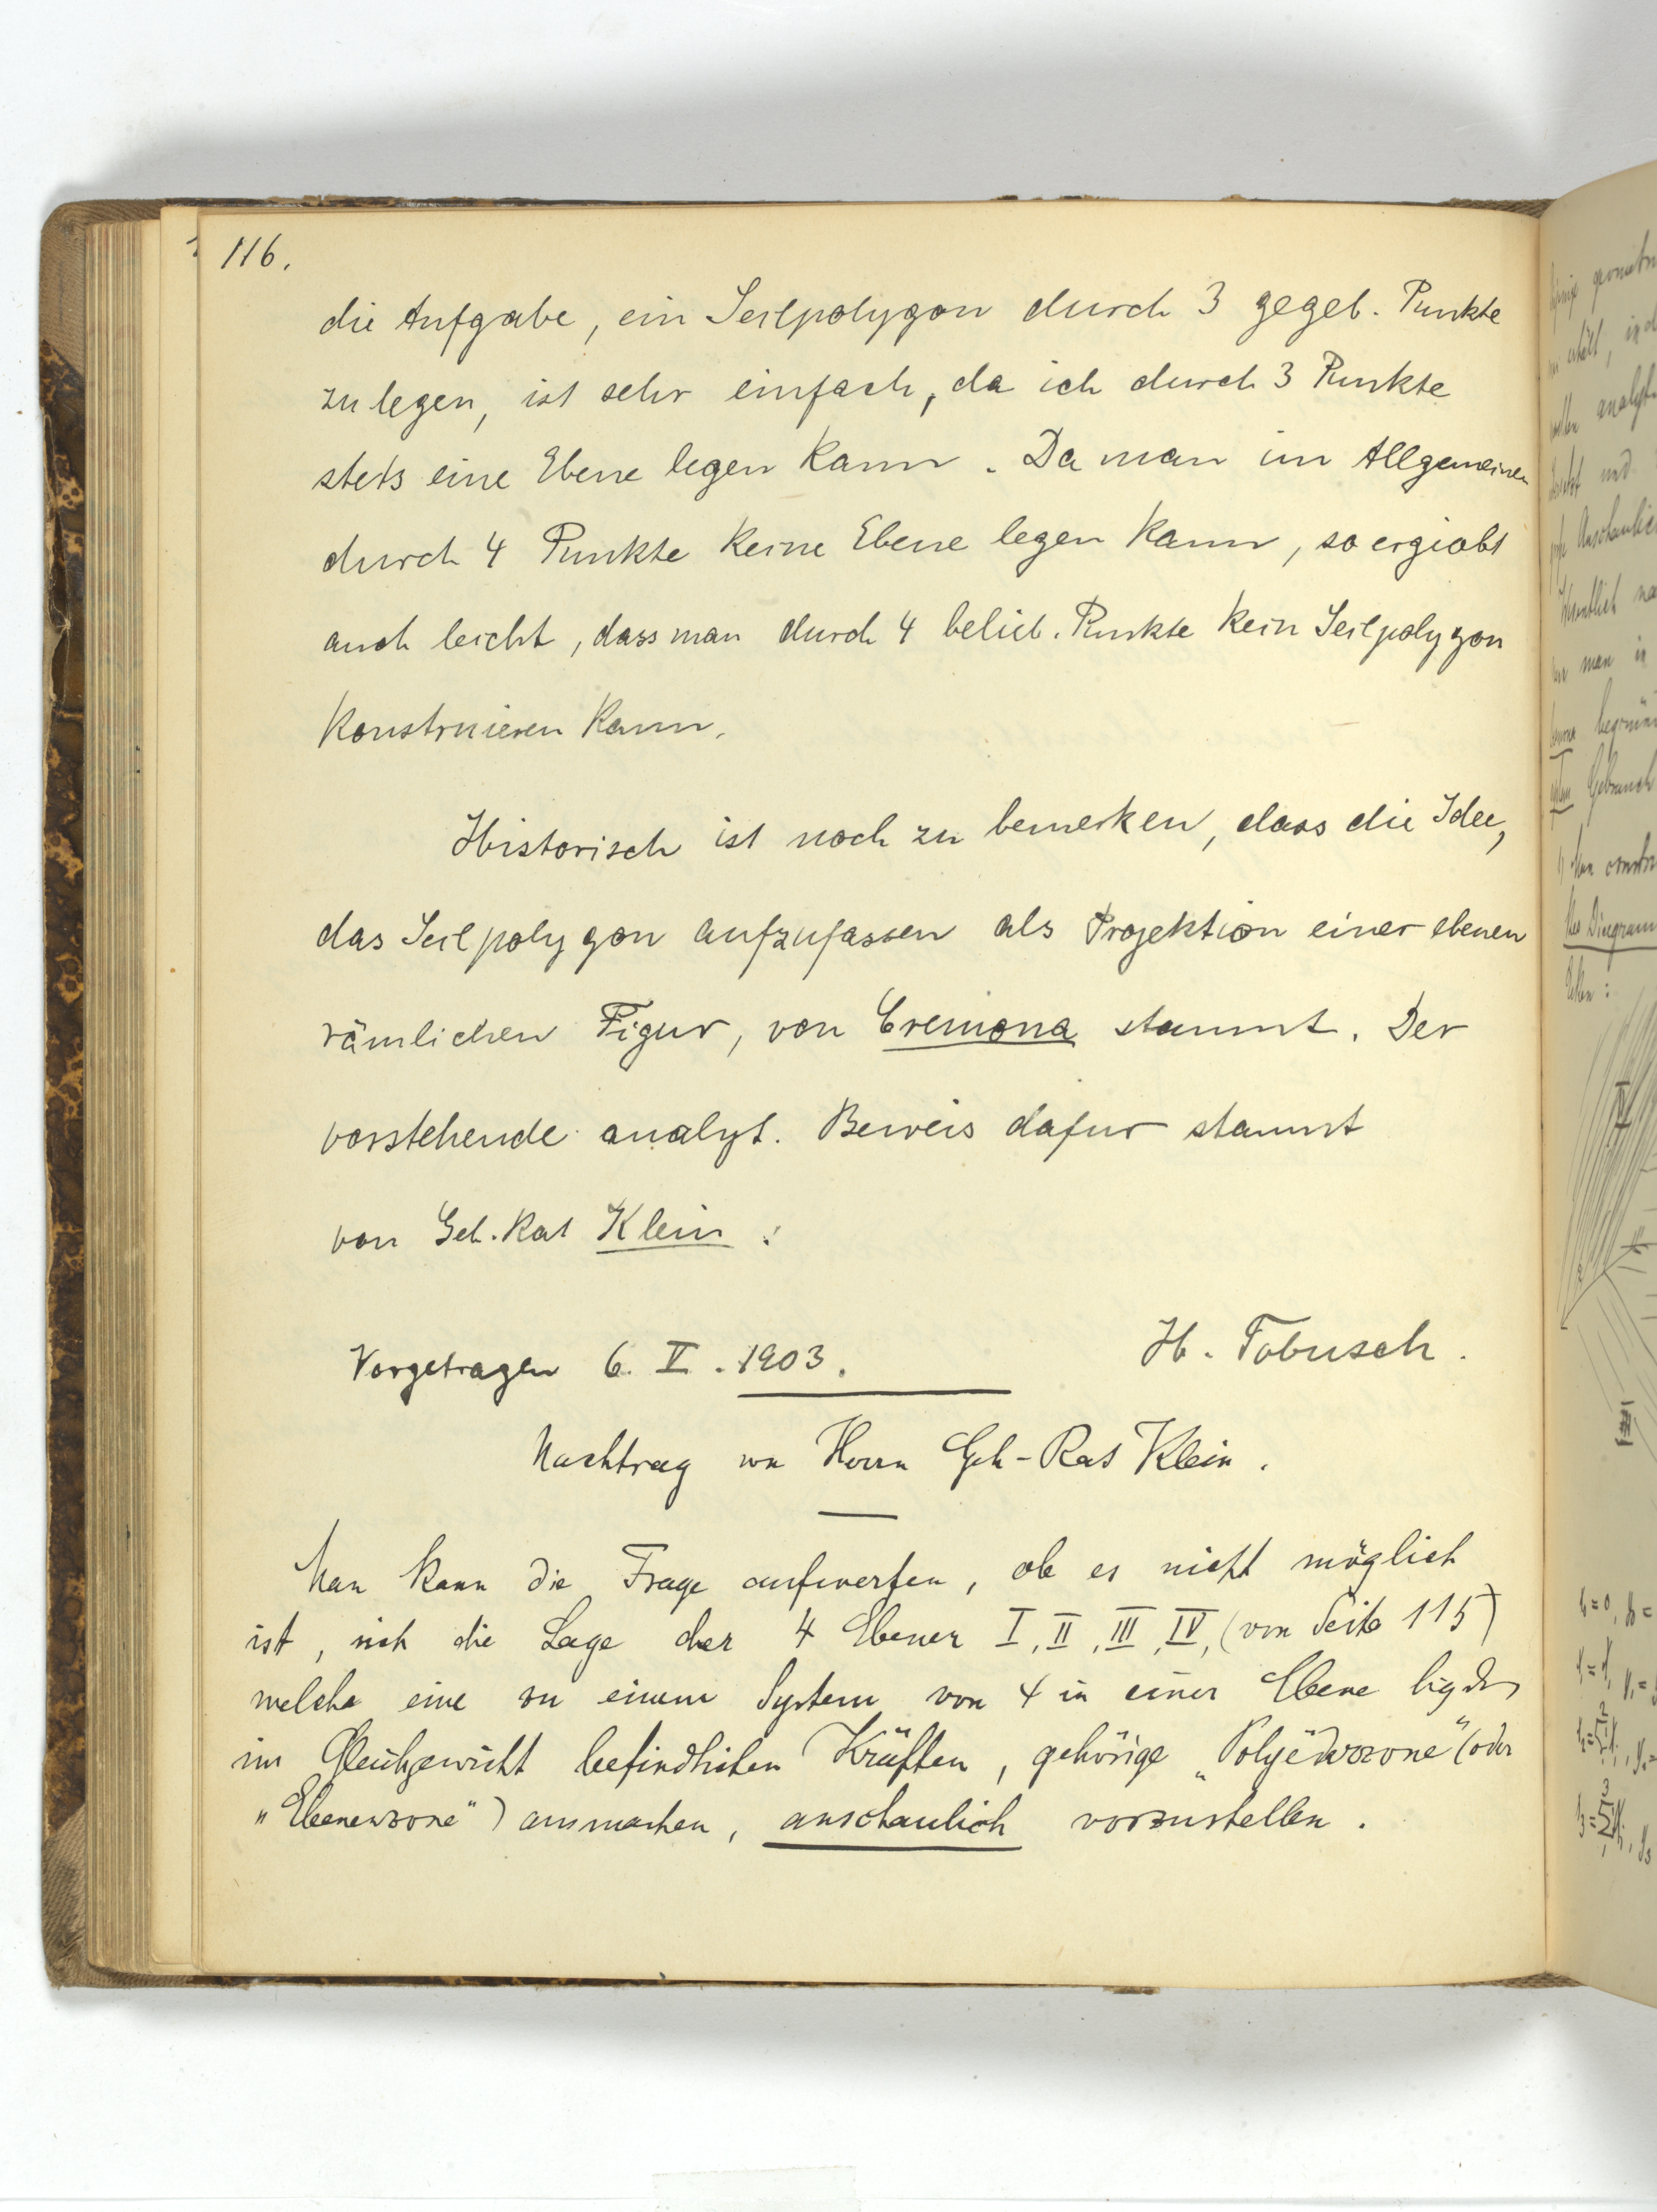 116.
die Aufgabe, ein Seilpolygon durch 3 gegeb. Punkte
zu legen, ist sehr einfach, da ich durch 3 Punkte
stets eine Ebene legen kann. Da man im Allgemeinen
durch 4 Punkte keine Ebene legen kann, so ergiebt
auch leicht, dass man durch 4 belieb. Punkte kein Seilpolygon
konstruieren kann.
Historisch ist noch zu bemerken, dass die Idee,
das Seilpolygon aufzufassen als Projektion einer ebenen
rämlichen Figur, von Cremona stammt. Der
vorstehende analyt. Beweis dafür stammt
von Geh. Rat Klein.
Vorgetragen 6. V. 1903. H. Tobusch.
Nachtrag von Herrn Geh-Rat Klein.
Man kann die Frage aufwerfen, ob es nicht möglich
ist, sich die Lage der 4 Ebenen I, II, III, IV, (von Seite 115)
welche eine zu einem System von 4 in einer Ebene
im Gleichgewicht befindlichen Kräften, gehörige „Polyëderzone" (oder
„Ebenenzone") ausmachen, anschaulich vorzustellen.